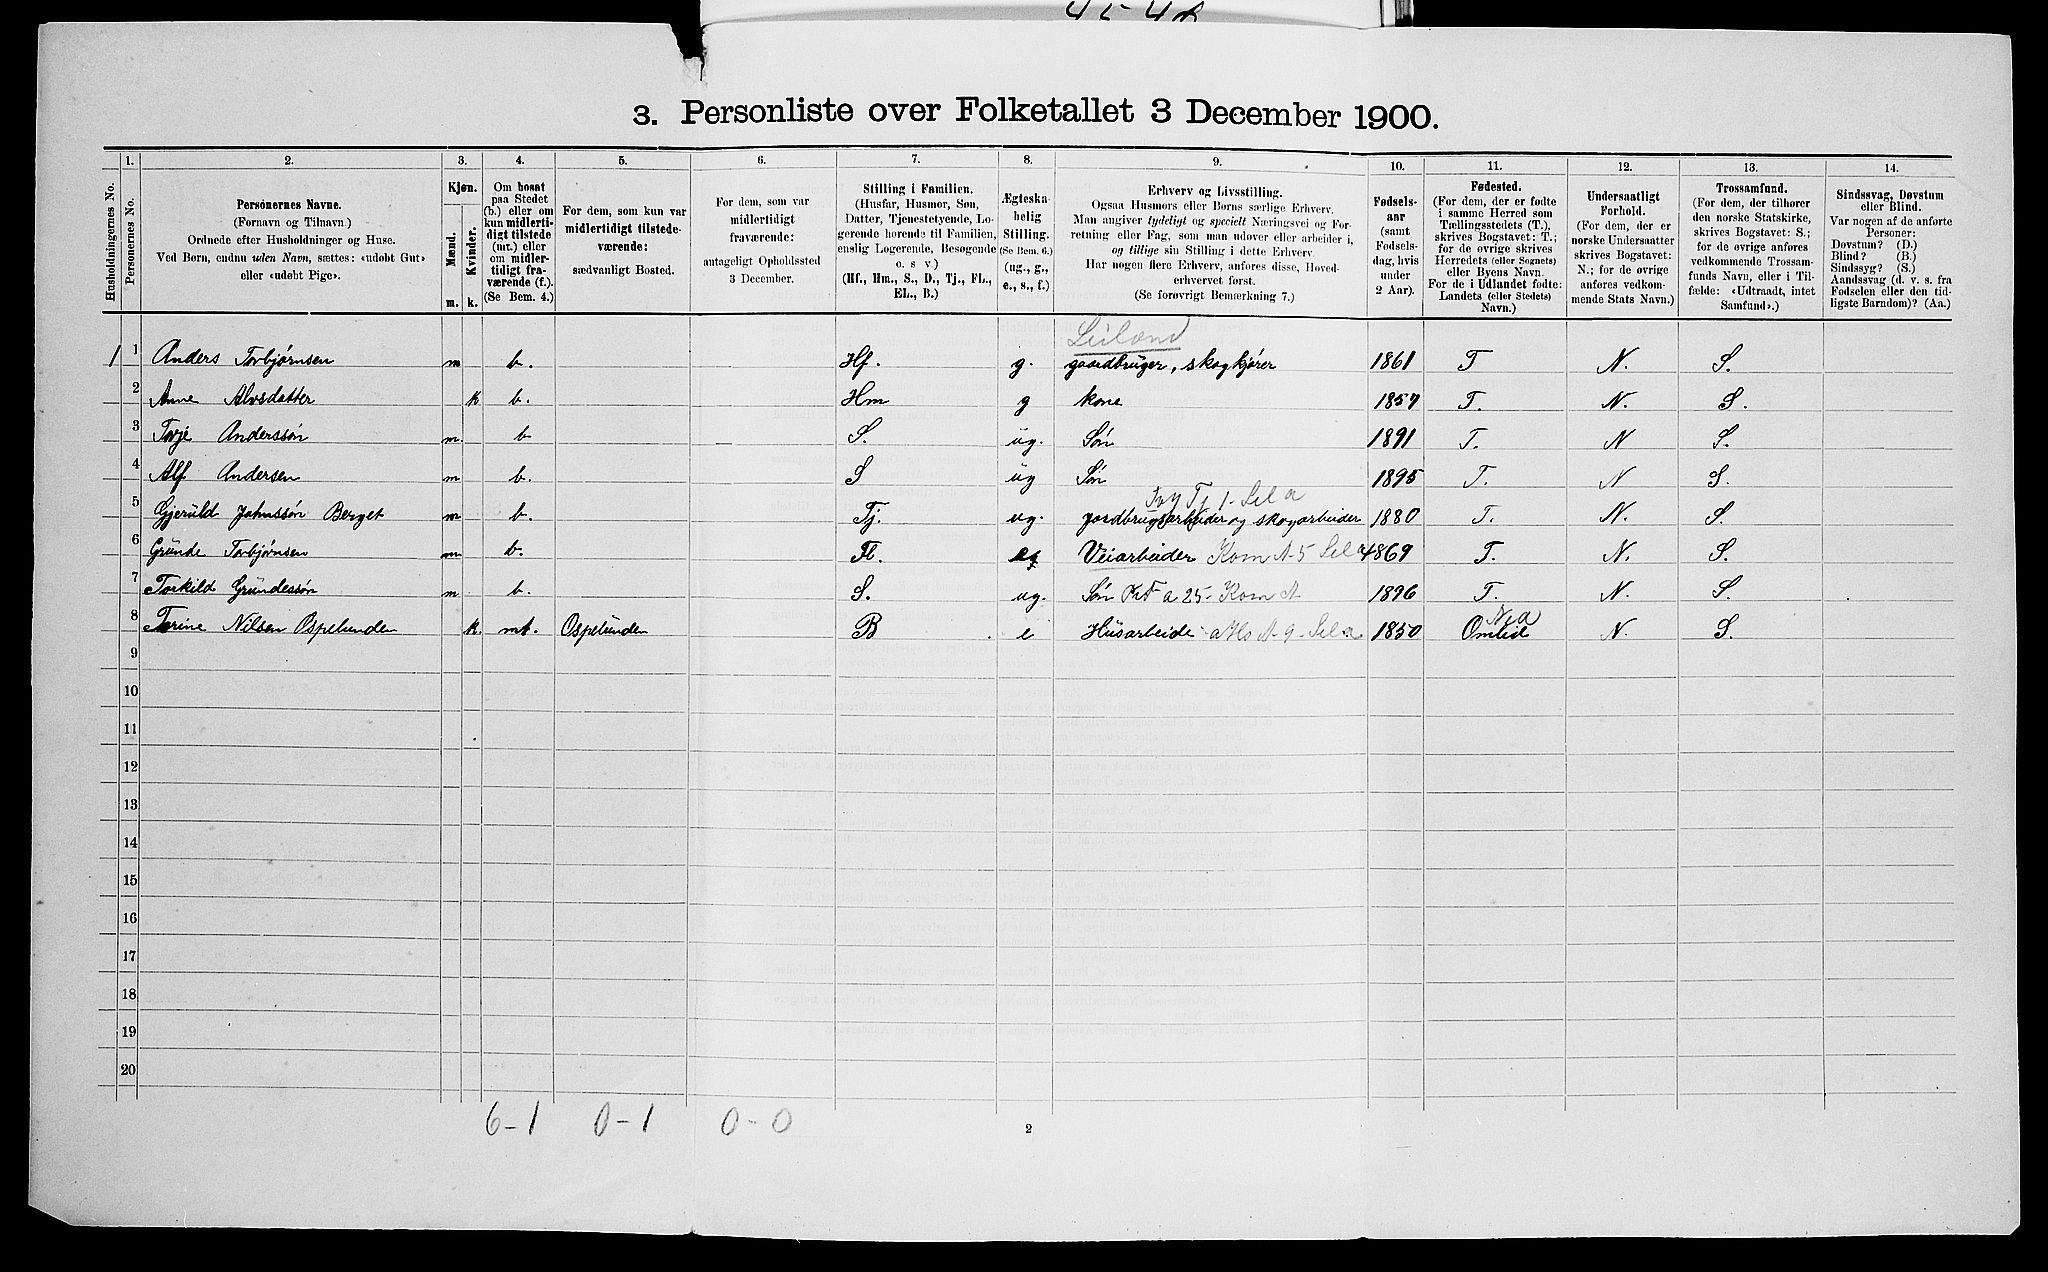 3. Personliste over Folketallet 3 December 1900.
Husholdningernes No.
1. Personernes No.
2. Personernes Navne.
(Fornavn og Tilnavn)
Ordnede efter Husholdninger og Huse.
Ved Børn, endnu uden Navn, sættes: «udøbt Gut»
eller «udøbt Pige».
3. Kjøn.
Mænd. Kvinder.
m. k.
4. Om bosat
paa Stedet
(b.) eller om
kun midlerti-
digt tilstede
(mt.) eller
om midler-
tidigt fra-
værende (f.).
(Se Bem. 4.)
5. For dem, som kun var
midlertidigt tilstede-
værende:
sædvanligt Bosted.
6. For dem, som var
midlertidigt
fraværende:
antageligt Opholdssted
3 December.
7. Stilling i Familien.
(Husfar, Husmor, Søn,
Datter, Tjenestetyende, Lo-
gerende hørende til Familien,
enslig Logerende, Besøgende
o. s. v.)
(Hf., Hm., S., D., Tj., FL.,
EL., B.)
8. Ægteska-
belig
Stilling.
(Se Bem. 6.)
(ug., g.,
e., s., f.)
9. Erhverv og Livsstilling.
Ogsaa Husmors eller Børns særlige Erhverv.
Man angiver tydeligt og specielt Næringsvei og For-
retning eller Fag, som man udøver eller arbeider i,
og tillige sin Stilling i dette Erhverv.
Har nogen flere Erhverv, anføres disse, Hoved-
erhvervet først.
(Se forøvrigt Bemærkning 7.)
10. Fødsels-
aar
(samt
Fødsels-
dag, hvis
under
2 Aar).
11. Fødested.
(For dem, der er fødte
i samme Herred som
Tællingsstedets (T.),
skrives Bogstavet: T.;
for de øvrige skrives
Herredets (eller Sognets)
eller Byens Navn.
For de i Udlandet fødte:
Landets (eller Stedets)
Navn.)
12. Undersaatligt
Forhold.
(For dem, der er
norske Undersaatter
skrives Bogstavet:
N.; for de øvrige
anføres vedkom-
mende Stats Navn.)
13. Trossamfund.
(For dem, der tilhører
den norske Statskirke,
skrives Bogstavet: S.;
for de øvrige anføres
vedkommende Trossam-
funds Navn, eller i Til-
fælde: «Udtraadt, intet
Samfund».)
14. Sindssvag, Døvstum
eller Blind.
Var nogen af de anførte
Personer:
Døvstum? (D.)
Blind? (B.)
Sindssyg? (S.)
Aandssvag (d. v. s. fra
Fødselen eller den tid-
ligste Barndom)? (Aa.)
Leilænd
1 1 Anders Torbjørnsen m b. Hf. g. gaardbruger, skogkjører 1861 T N. S.
2 Anne Alvsdatter k b. Hm g kone 1857 T. N. S.
3 Torje Anderssøn m. b S. ug. Søn 1891 T. N S.
4 Alf Andersen m b. S ug Søn 1895 T. N S.
5 Gjeruld Johnssøn Berget m b. Tj. ug. gaardbrugsarbeider og skogarbeider 1880 T. N. S.
6 Grunde Torbjørnsen m. b. Fl. Veiarbeider 1869 T. N. S.
7 Torkild Grundessøn m b. S. ug. Søn 1896 T. N. S.
8 Terine Nilsen Ospelunden k. mt. Ospelunden B e Husarbeide 1850 Omlid N. S.
9
10
11
12
13
14
15
16
17
18
19
20
6-1 0-1 0-0
2